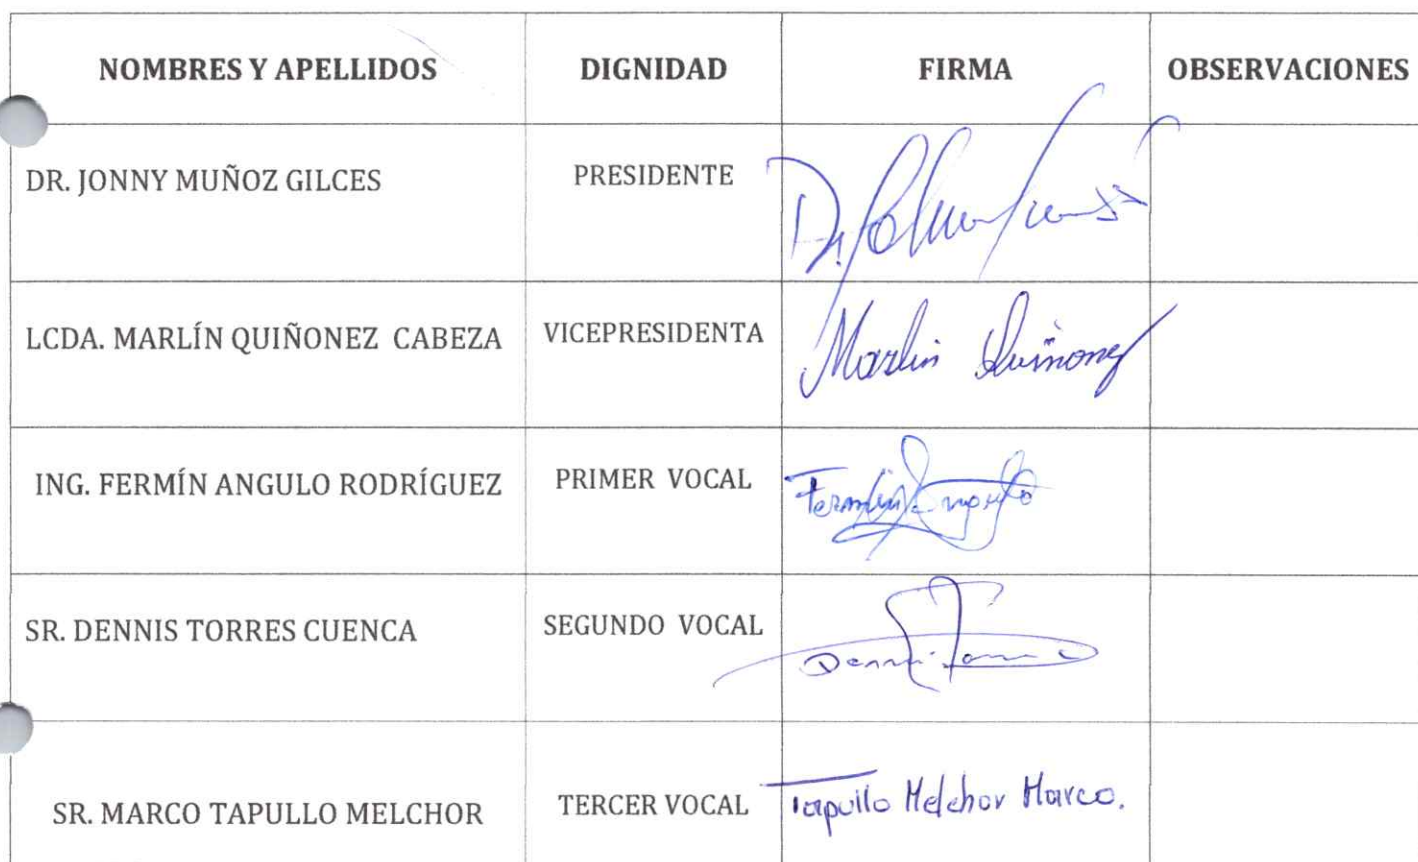 NOMBRES Y APELLIDOS DIGNIDAD FIRMA OBSERVACIONES
DR. JONNY MUÑOZ GILCES PRESIDENTE Dr.
LCDA. MARLÍN QUIÑONEZ CABEZA VICEPRESIDENTA Marlin Quiñonez
ING. FERMÍN ANGULO RODRÍGUEZ PRIMER VOCAL Fermín Angulo
SR. DENNIS TORRES CUENCA SEGUNDO VOCAL
SR. MARCO TAPULLO MELCHOR TERCER VOCAL Tapullo Melchor Marco.